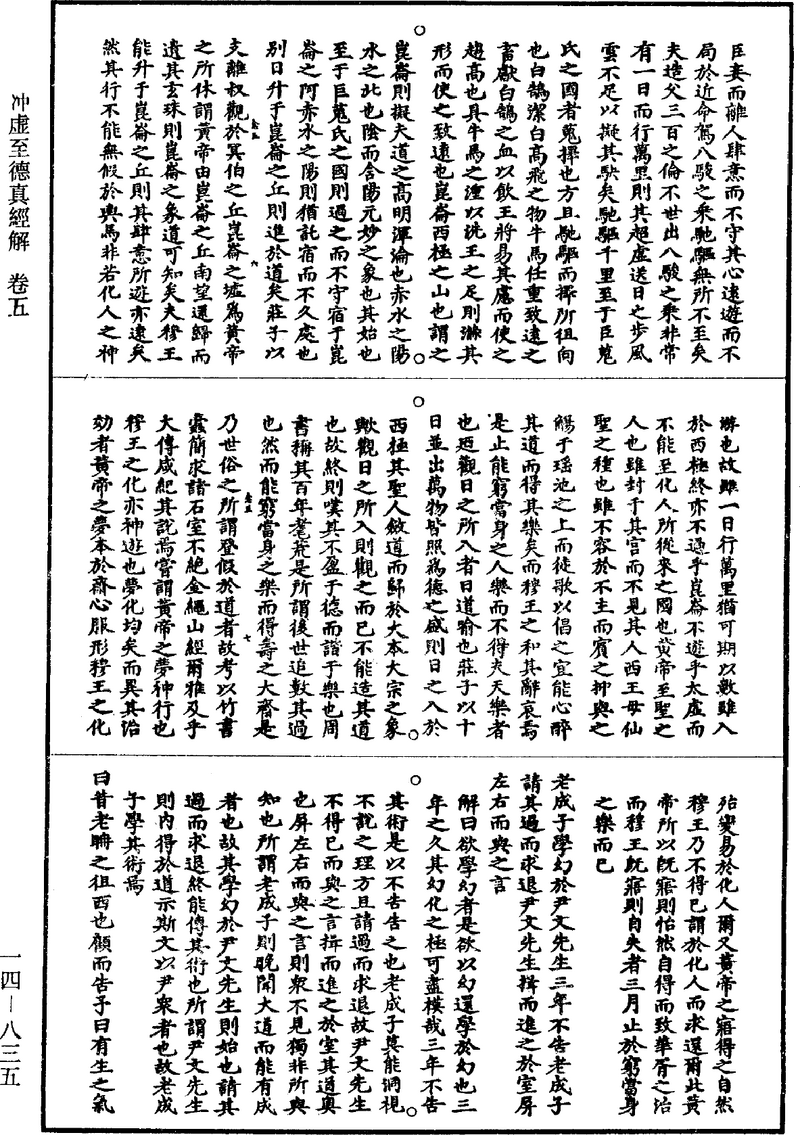 冲虛至德真經解　卷五
臣妾而離人肆意而不守其心遠遊而不
局於近命駕八駿之乘馳驅無所不至矣
夫造父三百之倫不世出八駿之乘非常
有一日而行萬里則其超虛送日之步風
雲不足以擬其駃矣馳驅千里至于巨蒐
氏之國者蒐擇也方且馳驅而擇所徂向
也白鵠潔白高飛之物牛馬任重致遠之
畜獻白鵠之血以飲王將易其慮而使之
趨高也具牛馬之湩以洗王之足則滌其
形而使之致遠也崑崙西極之山也謂之
崑崙則擬夫道之高明渾淪也赤水之陽
水之北也陰而含陽元妙之象也其始也
至于巨蒐氏之國則過之而不守宿于崑
崙之阿赤水之陽則猶託宿而不久處也
別日升于崑崙之丘則進於道矣莊子以
支離叔觀於冥伯之丘崑崙之墟為黃帝
之所休謂黃帝由崑崙之丘南望還歸而
遺其玄珠則崑崙之象道可知矣夫穆王
能升于崑崙之丘則其肆意所遊亦遠矣
然其行不能無假於輿馬非若化人之神
遊也故雖一日行萬里猶可期以數雖入
於西極終亦不過乎崑崙不遊乎太虛而
不能至化人所從來之國也黃帝至聖之
人也雖封于其宮而不見其人西王母仙
聖之種也雖不容於不主而賓之抑與之
觴于瑤池之上而徒歌以倡之宜能心醉
其道而得其樂矣而穆王之和其辭哀焉
是止能窮當身之人樂而不得夫天樂者
也迺觀日之所入者日道喻也莊子以十
日並出萬物皆照為德之盛則日之入於
西極其聖人斂道而歸於大本大宗之象
歟觀日之所入則觀之而已不能造其道
也故終則嘆其不盈于德而諧于樂也周
書稱其百年耄荒是所謂後世追數其過
也然而能窮當身之樂而得壽之大齊是
乃世俗之所謂登假於道者故考以竹書
蠹簡求諸石室不絕金繩山經爾雅及乎
大傳咸紀其說焉嘗謂黃帝之夢神行也
穆王之化亦神遊也夢化均矣而異其治
効者黃帝之夢本於齋心服形穆王之化
殆變易於化人爾又黃帝之寤得之自然
穆王乃不得已謂於化人而求還爾此黃
帝所以既寤則怡然自得而致華胥之治
而穆王既寤則自失者三月止於窮當身
之樂而已
老成子學幻於尹文先生三年不告老成子
請其過而求退尹文先生揖而進之於室屏
左右而與之言
解曰欲學幻者是欲以幻還學於幻也三
年之久其幻化之極可盡模哉三年不告
其術是以不告告之也老成子莫能洞視
不說之理方且請過而求退故尹文先生
不得已而與之言揖而進之於室其道奧
也屏左右而與之言則衆不見獨非所與
知也所謂老成子則晚聞大道而能有成
者也故其學幻於尹文先生則始也請其
過而求退終能傳其術也所謂尹文先生
則內得於道示斯文以尹衆者也故老成
子學其術焉
曰昔老聃之徂西也顧而告予曰有生之氣
一四—八三五